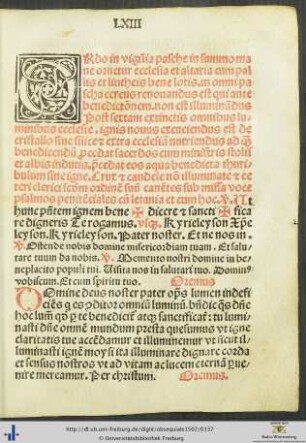 LXIII
Ordo in vigilia pasche in summo ma
ne ornetur ecclesia et altaria cum pal
lis et lintheis bene lotis. in omni pa
scha cereus renouandus est qui ante
benedictōnem. non est illuminādus
Post sextam extinctis omnibus lu
minibus ecclesie. ignis nouus excuciendus est de
cristallo siue silice et extra ecclesiā nutriendus
benedicendꝰ. procedat sacerdos cum ministris
et albis indutis. procedat eos aqua benedicta thuri
bulum sine igne. Crux et candele nō illuminate et ce
teri clerici scōm ordinē suū canētes sub missa voce
psalmos penitēciales cū letania et cum hoc. V. Ut
hunc pn̄tem ignem bene ✠ dicere et sancti ✠ fica
re digneris Te rogamus. Kyrieleyson Xp̄e
leyson. Kyrieleyson. Pater noster. Et ne nos in.
V. Ostende nobis domine misericordiam tuam. Et salu
tare tuum da nobis. V. Memento nostri domine in be
neplacito populi tui. Visita nos in salutari tuo. Dominꝰ
vobiscum. Et cum spiritu tuo. Oremus
Domine deus noster pater op̄s lumen indefi
ciēs q es ꝯditor omniū luminū. bn̄dic qs dn̄e
hoc lumē qd̄ p te benedicāt atqꝫ sanctificāt: tu lu
minasti dn̄e omnē mundum presta quesumus vt igne
claritatis tue accēdamur et illuminemur vt sicut il
luminasti ignē moysi ita illuminare dignare corda
et sensus nostros vt ad vitam ac lucem eternā ꝑue
nire mereamur. Per christum. Oremus.
http://dl.ub.uni-freiburg.de/diglit/obsequiale1502/0137
© Universitätsbibliothek Freiburg